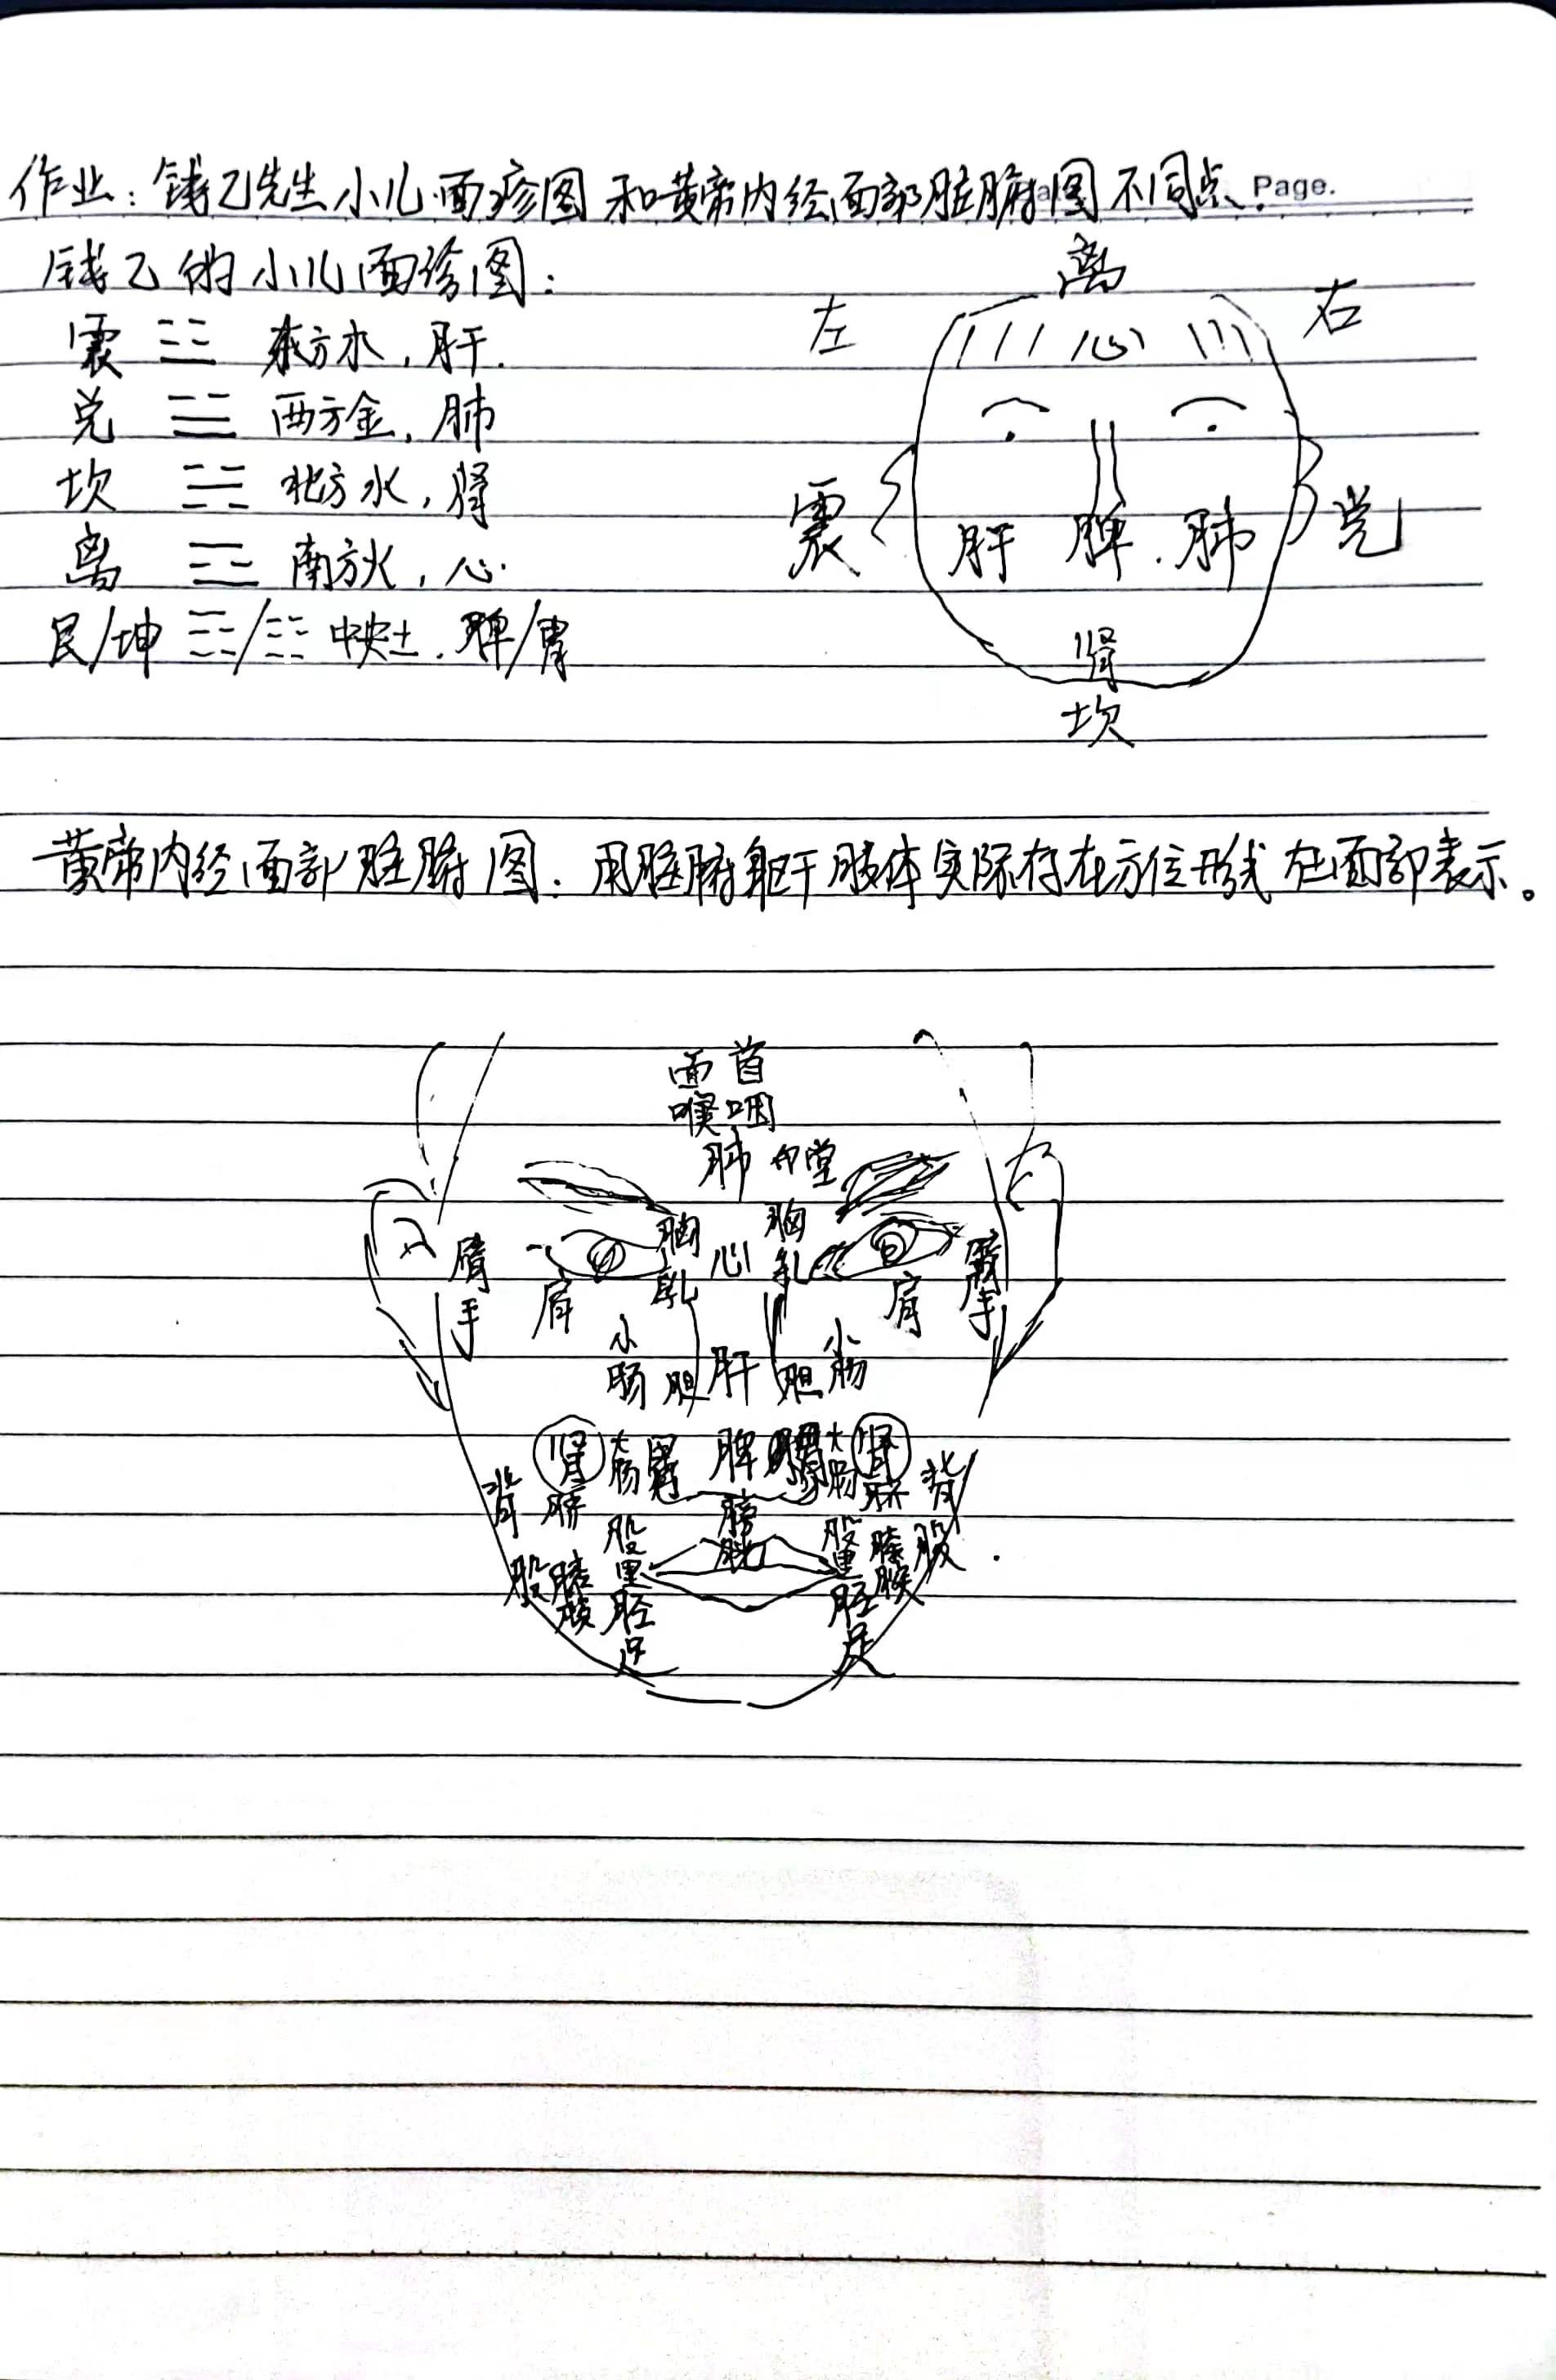 作业：钱乙先生小儿面疹图和黄帝内经面部脏腑图不同点.
Page.
钱乙的小儿面诊图：
震 ☳ 东方木，肝.
兑 ☱ 西方金，肺
坎 ☵ 北方水，肾
离 ☲ 南方火，心.
艮/坤 ☶/☷ 中央土.脾/胃
离
左 右
心
震 兑
肝 脾.肺
肾
坎
黄帝内经面部脏腑图：用脏腑躯干肢体实际存在方位形式在面部表示。
面首
喉咽
肺 印堂
胸乳 心 胸乳
臂手 肩 肩 臂手
小肠 胆 肝 胆 小肠
肾 大肠 胃 脾 胃 大肠 肾
背 脐 脐 背
膀胱
股 膝膑 股里 胫 足
股里 胫 足 膝 股